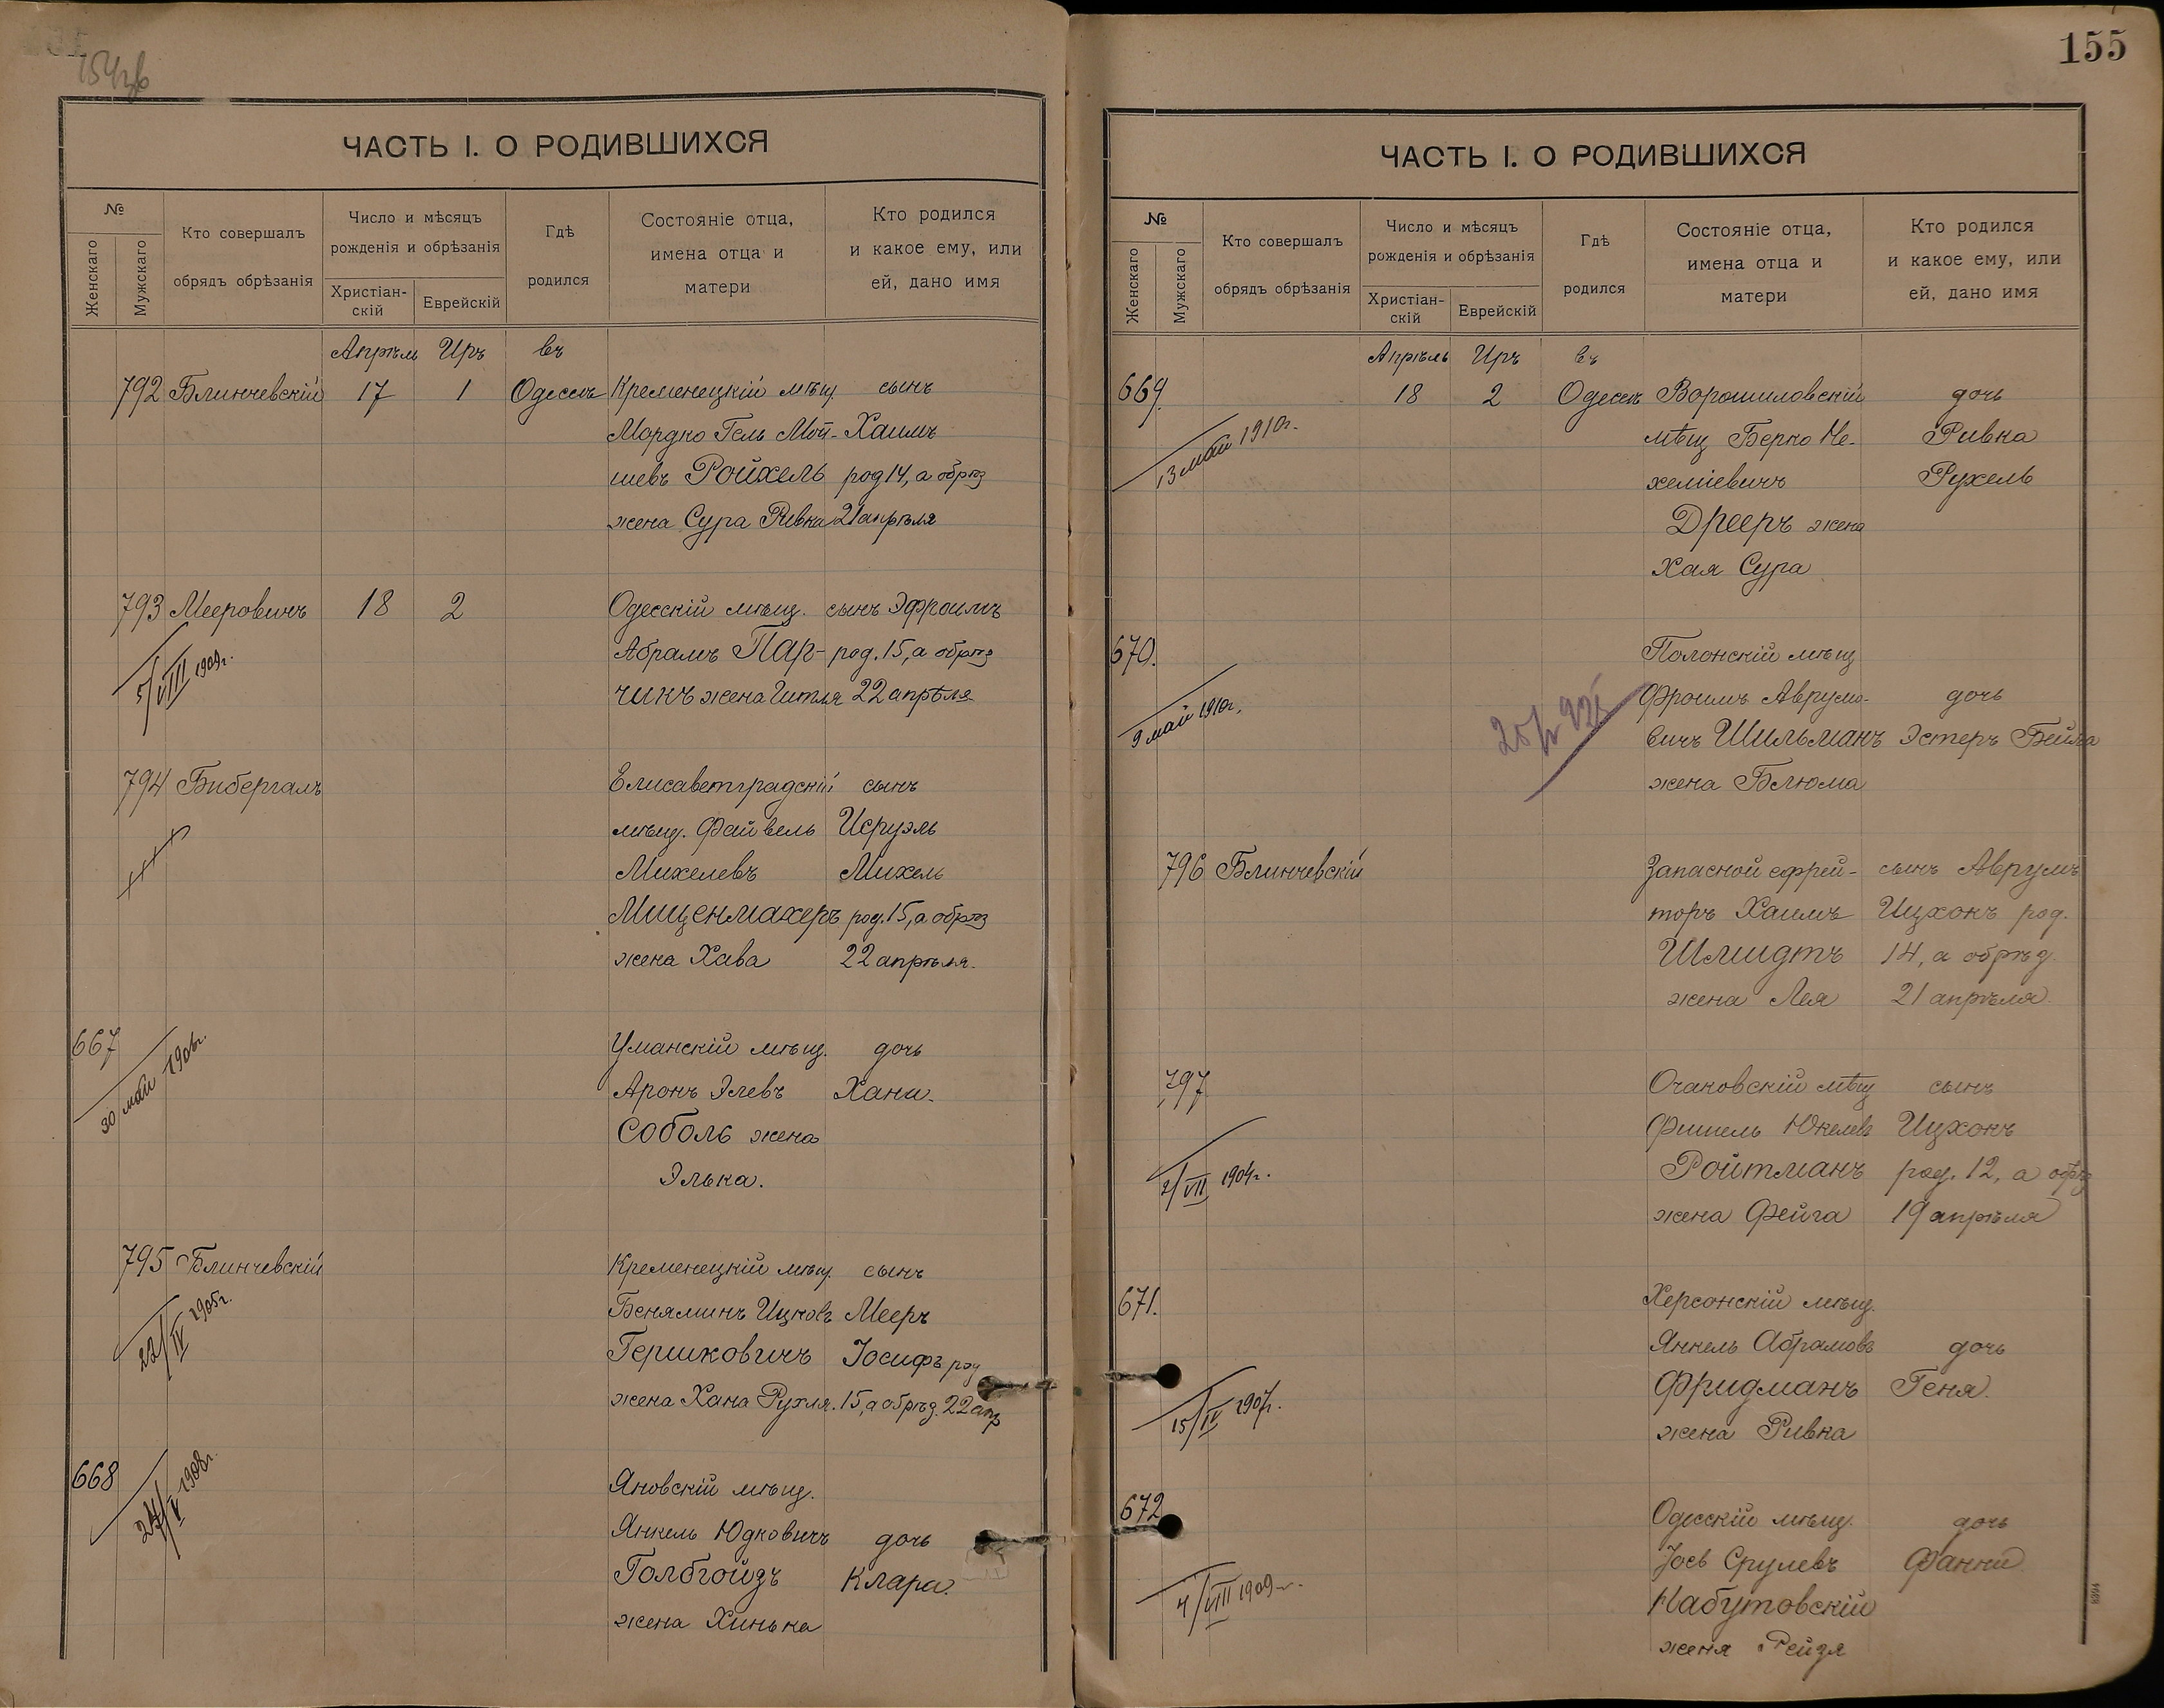 154 об
ЧАСТЬ I. О РОДИВШИХСЯ
№
Женскаго
Мужскаго
Кто совершалъ
обрядъ обрѣзанія
Число и мѣсяцъ
рожденія и обрѣзанія
Христіан-
скій
Еврейскій
Гдѣ
родился
Состояніе отца,
имена отца и
матери
Кто родился
и какое ему, или
ей, дано имя
Апрѣль Иръ въ
792 Блинчевскій 17 1 Одессѣ Кременецкій мѣщ сынъ
Мордко Гель Мой- Хаимъ
шевъ Ройхель род 14, а обрѣз
жена Сура Ривка 21 апрѣля
793 Мееровичъ 18 2 Одесскій мѣщ. сынъ Эфроимъ
Абрамъ Пар- род. 15, а обрѣз
5/VIII 1909г.
чикъ жена Гитля 22 апрѣля
794 Бибергалъ Елисаветградскій сынъ
мѣщ. Файвель Исруэль
Михелевъ Михель
Миценмахеръ род. 15, а обрѣз
жена Хава 22 апрѣля.
667 Уманскій мѣщ. дочь
30 май 1906г.
Аронъ Элевъ Хана.
Соболь жена
Элька.
795 Блинчевскій Кременецкій мѣщ. сынъ
Беняминъ Ицковъ Мееръ
22/IV 1905г.
Гершковичъ Іосифъ род
жена Хана Рухля. 15, а обрѣз. 22 апр
668 Яновскій мѣщ.
24/V 1908г.
Янкель Юдковичъ дочь
Голбгойзъ Клара.
жена Хинька
155
ЧАСТЬ I. О РОДИВШИХСЯ
№
Женскаго
Мужскаго
Кто совершалъ
обрядъ обрѣзанія
Число и мѣсяцъ
рожденія и обрѣзанія
Христіан-
скій
Еврейскій
Гдѣ
родился
Состояніе отца,
имена отца и
матери
Кто родился
и какое ему, или
ей, дано имя
Апрѣль Иръ въ
669. 18 2 Одессѣ Ворошиловскій дочь
13 май 1910г.
мѣщ Берко Не- Ривка
хеміевичъ Рухель
Дрееръ жена
Хая Сура
670. Полонскій мѣщ
9 май 1910г.
Фроимъ Аврумо- дочь
вичъ Шильманъ Эстеръ Бейла
жена Блюма
796 Блинчевскій Запасной ефрей- сынъ Аврумъ
торъ Хаимъ Ицхокъ род.
Шмидтъ 14, а обрѣз
жена Лея 21 апрѣля
797 Очаковскій мѣщ сынъ
Фишель Юкелевъ Ицхокъ
2/VII 1904г.
Ройтманъ род. 12, а обрѣз
жена Фейга 19 апрѣля
671. Херсонскій мѣщ.
Янкель Абрамовъ дочь
15/IV 1907г.
Фридманъ Геня.
жена Ривка
672 Одесскій мѣщ. дочь
Іось Срулевъ Фанни
4/VIII 1909г.
Кабутовскій
жена Рейзя